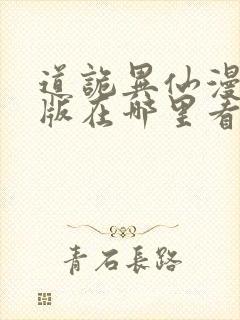 道詭異仙漫
版在哪里看
青石長路